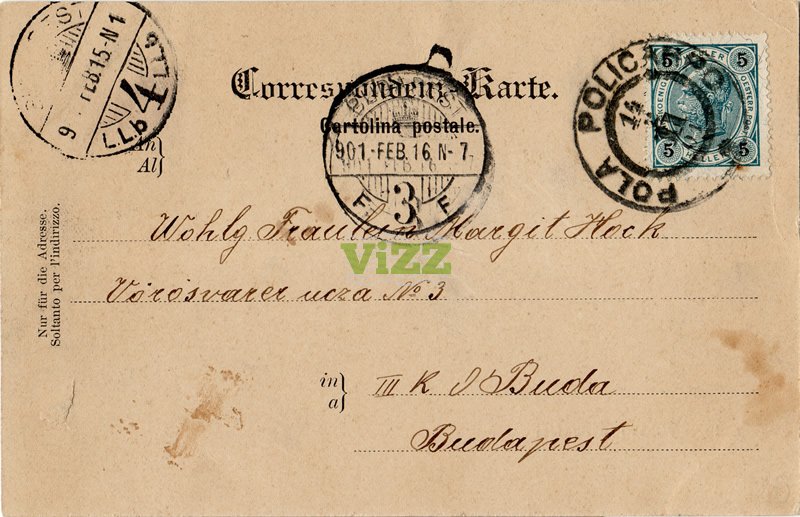 Correspondenz-Karte.
Cartolina postale.
901-FEB.16.N-7
F. 3 F
FEB.15.N1
9
4
LLb
POLA POLICARPO
5 5
5 5
An
Al
Wohlg Fraulein Margit Hock
ViZZ
Vörösvarer ucza No 3
in
a
III K Ó Buda
Budapest
Nur für die Adresse.
Soltanto per l'indirizzo.